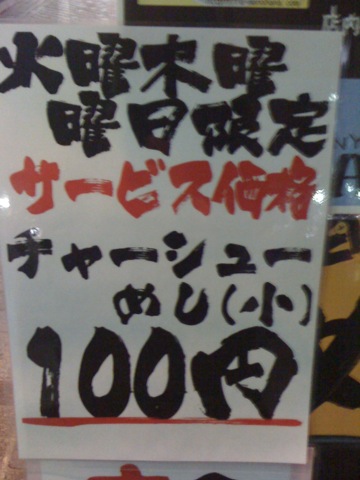 火曜木曜
曜日限定
サービス価格
チャーシュー
めし(小)
100円
店内
NY